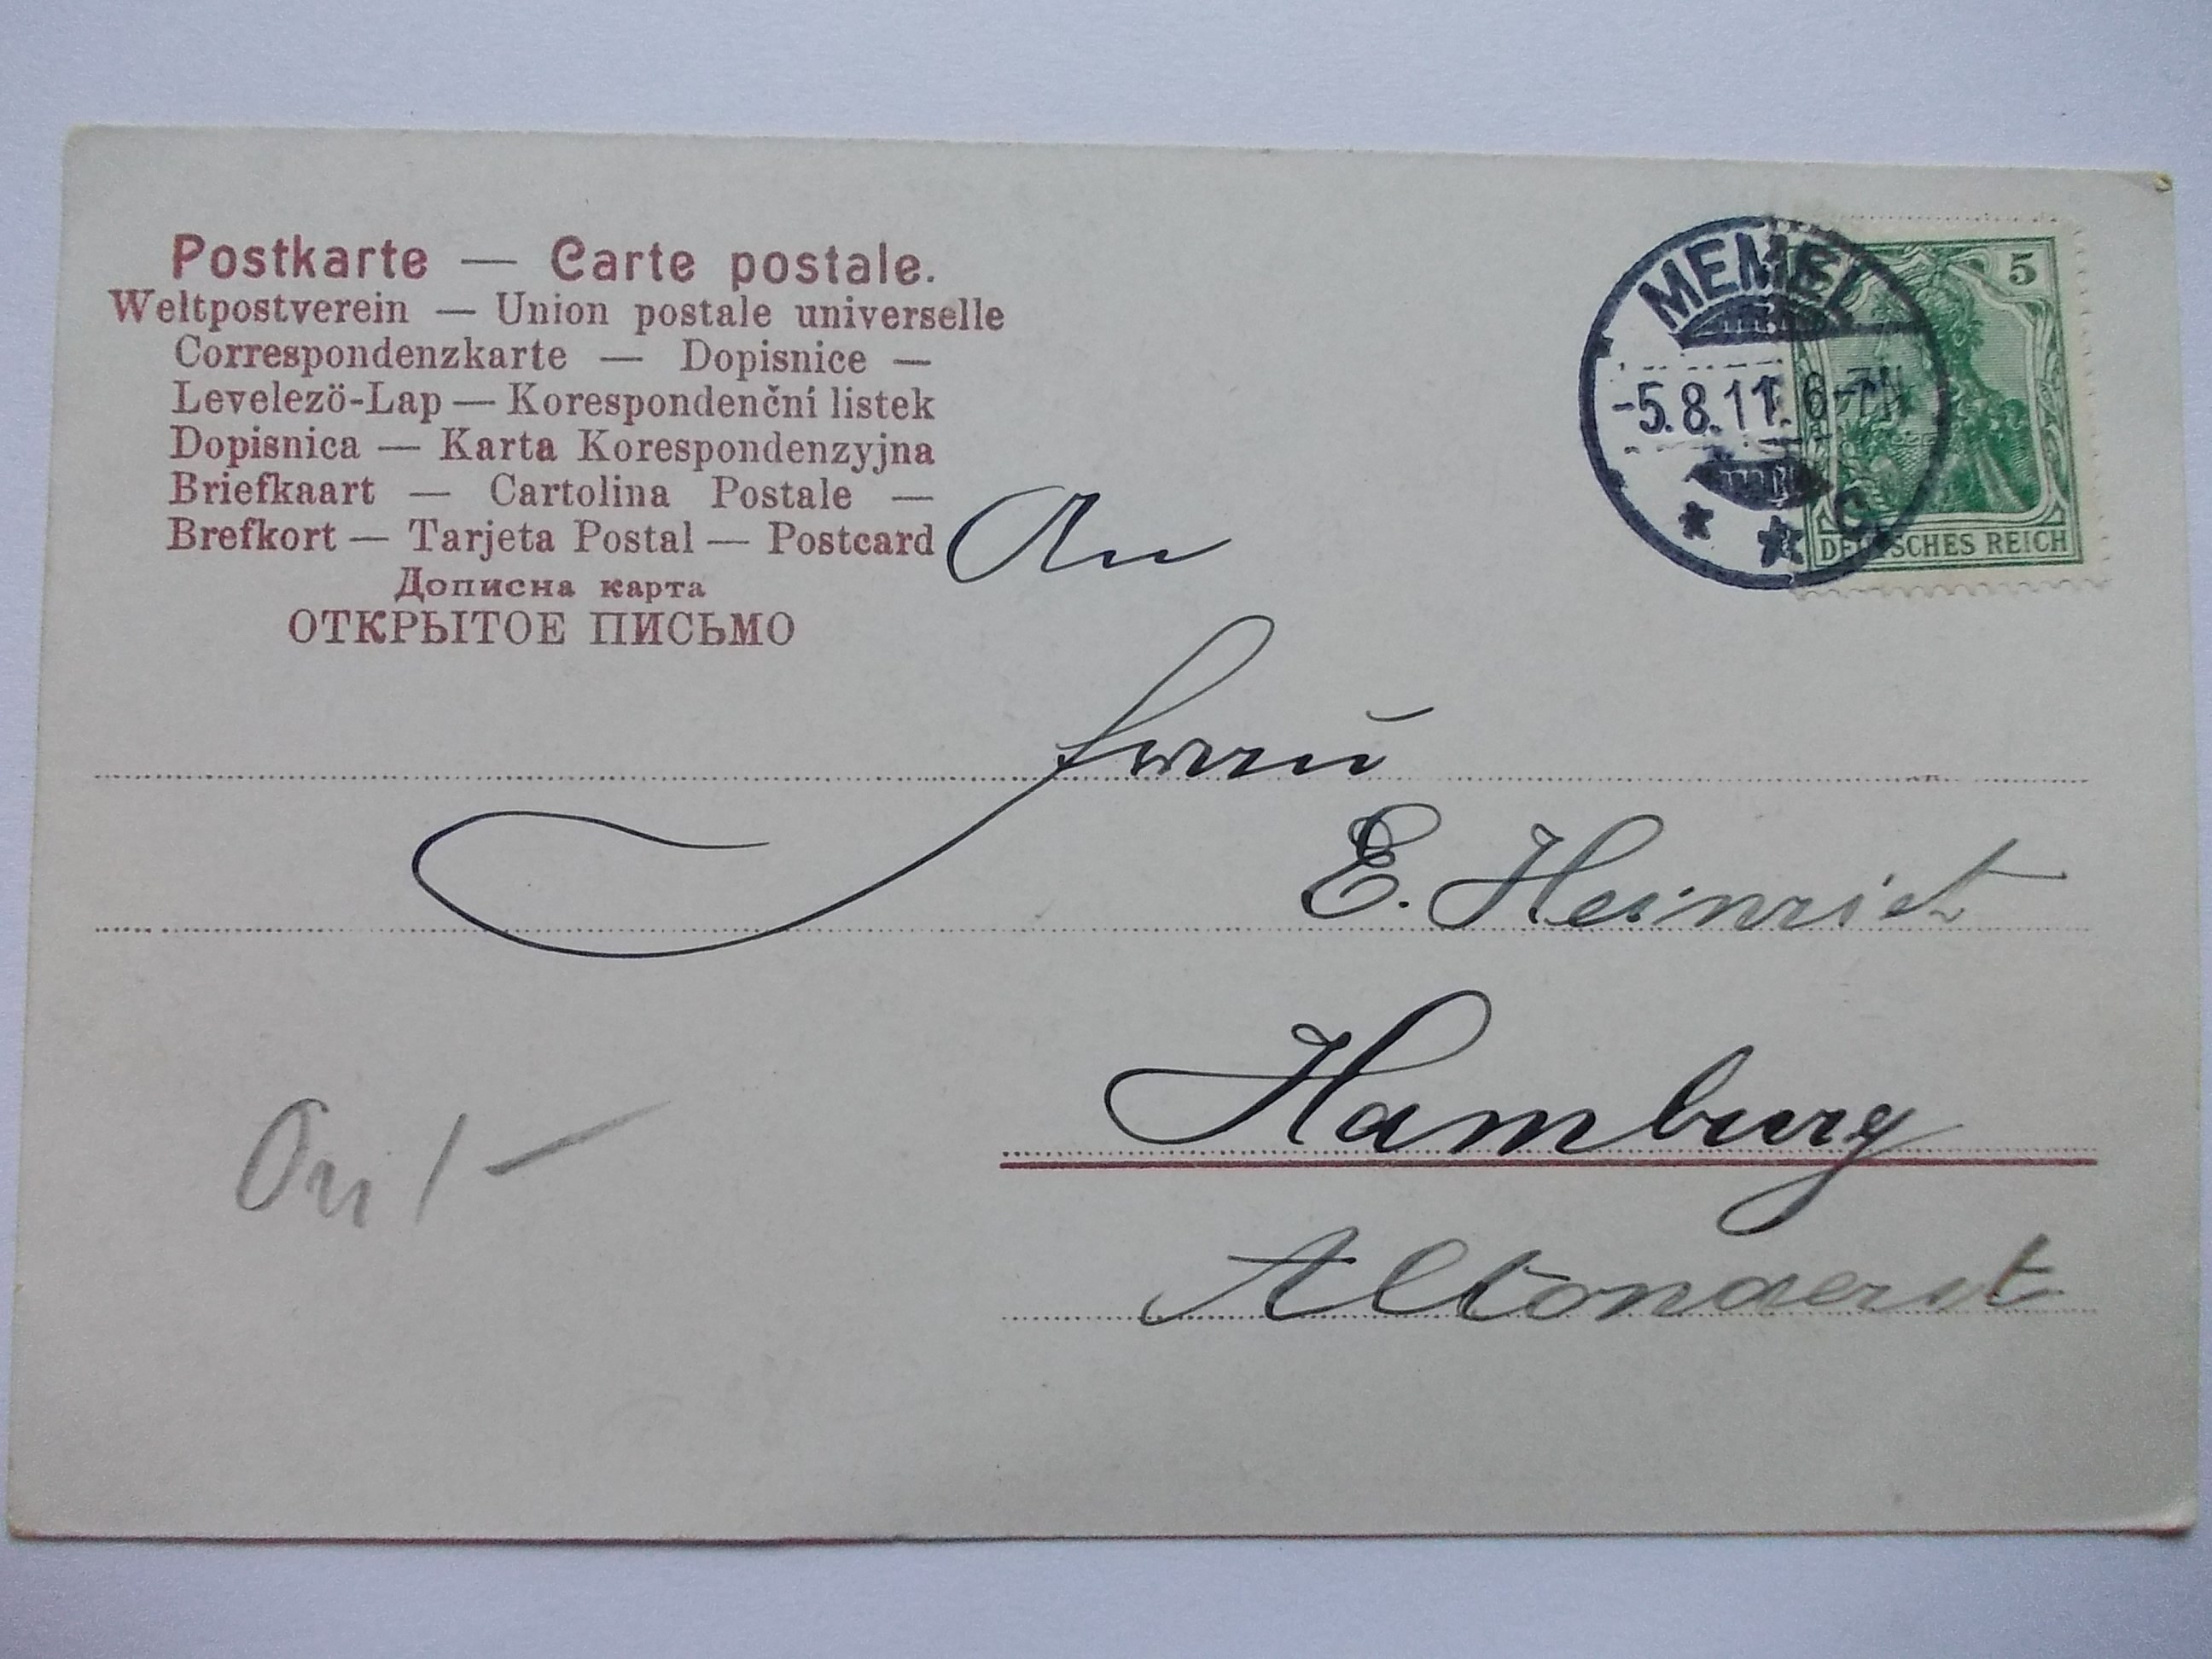 Postkarte — Carte postale.
Weltpostverein — Union postale universelle
Correspondenzkarte — Dopisnice —
Levelezö-Lap — Korespondenční listek
Dopisnica — Karta Korespondenzyjna
Briefkaart — Cartolina Postale —
Brefkort — Tarjeta Postal — Postcard
Дописна карта
ОТКРЫТОЕ ПИСЬМО
MEMEL
-5.8.11. 6-7N
* * C.
5
DEUTSCHES REICH
An
Frau
E. Heinrich
Hamburg